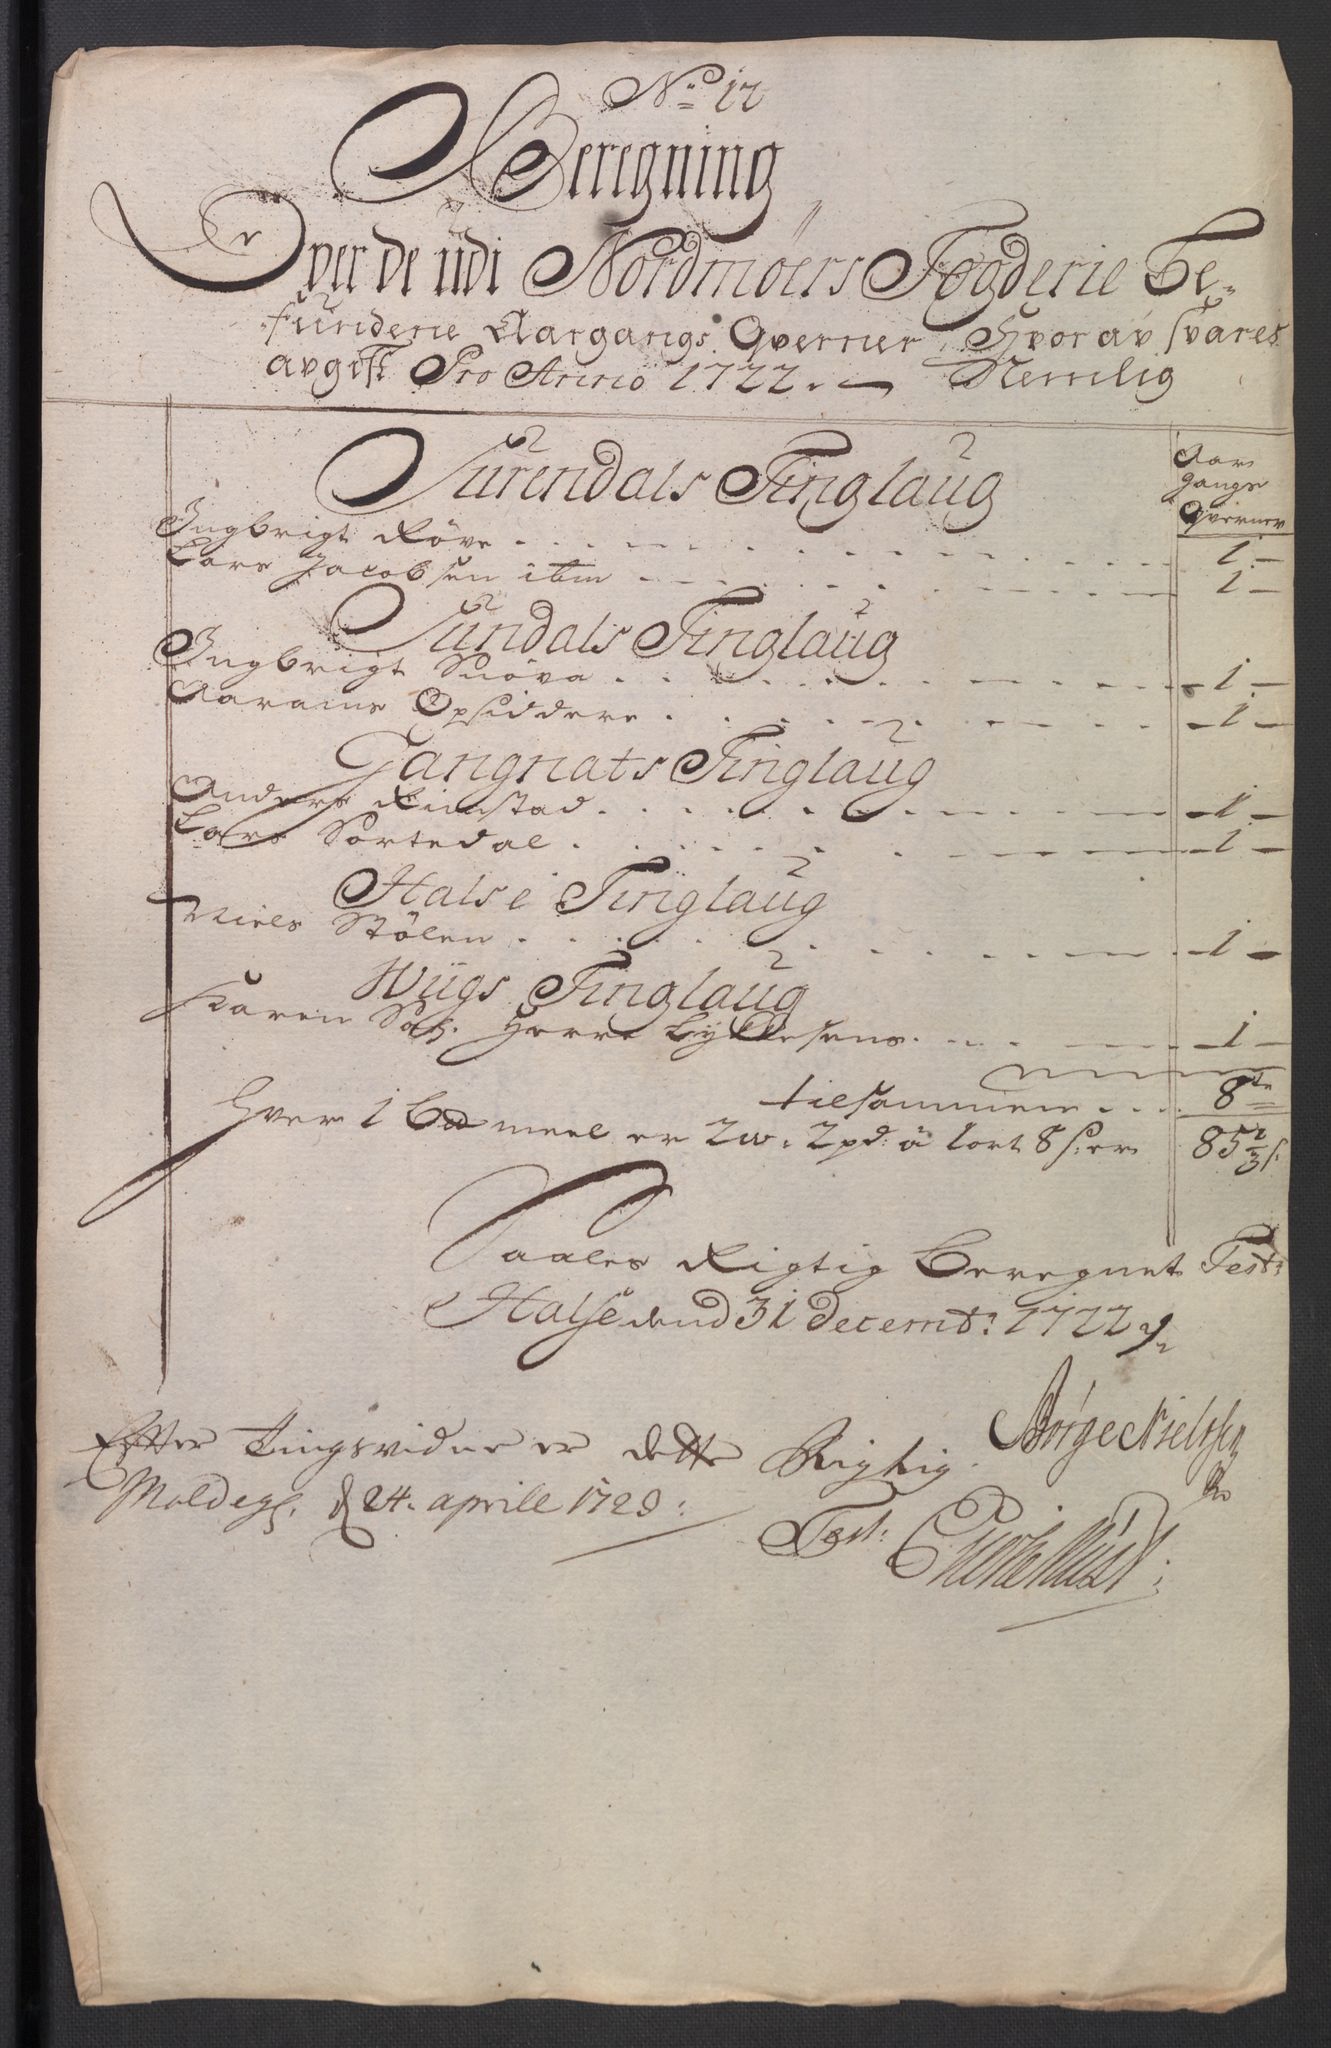 No 12
Beregning
Over de udi Nordmøers Fogderie be-
funderne Aargangs Qverner, Hvorav svares
avgift Pro Anno 1722. Nemlig
Aar
gangs
Qverner
Surendals Tinglaug
Ingbrigt Røve 1
Lars Jacobsen ibm 1
Sundals Tinglaug
Ingbrigt Snøva 1
Opsiddere 1
Gangnats Tinglaug
Anders Rimstad 1
Lars Sortedal 1
Halse Tinglaug
Niels Stølen 1
Wiigs Tinglaug
Karen Sal. Herr Lykkesens 1
tilsammen 8te
Hver 1 meel er 2 w: 2 pd: á 1 ort 8 s: er 85 2/3 s:
Saales Rigtig Beregnet Test:
Halse dend 31 decembr: 1722
Børge Nielssen
Efter Tingsvidne er dette Rigtig.
Moldeg. d 24. aprill 1723:
Test: